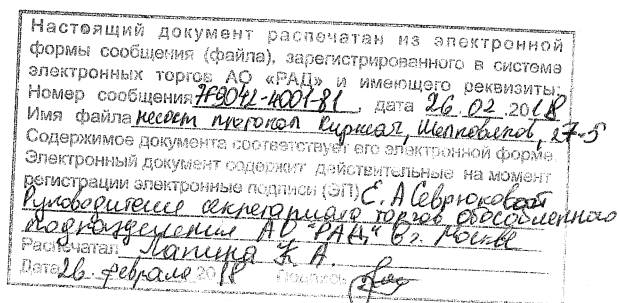 Настоящий документ распечатан из электронной
формы сообщения (файла), зарегистрированного в системе
электронных торгов АО «РАД» и имеющего реквизиты:
Номер сообщения 779042-4001-81, дата 26.02.2018
Имя файла несост протокол Киржач, 27-5
Содержимое документа соответствует его электронной форме.
Электронный документ содержит действительные на момент
регистрации электронные подписи (ЭП) Е.А Севрюковой
Руководителя секретариата торгов обособленного
подразделения АО "РАД" в г. Москве
Распечатал Лапина К А.
Дата 26. февраля 2018 Подпись